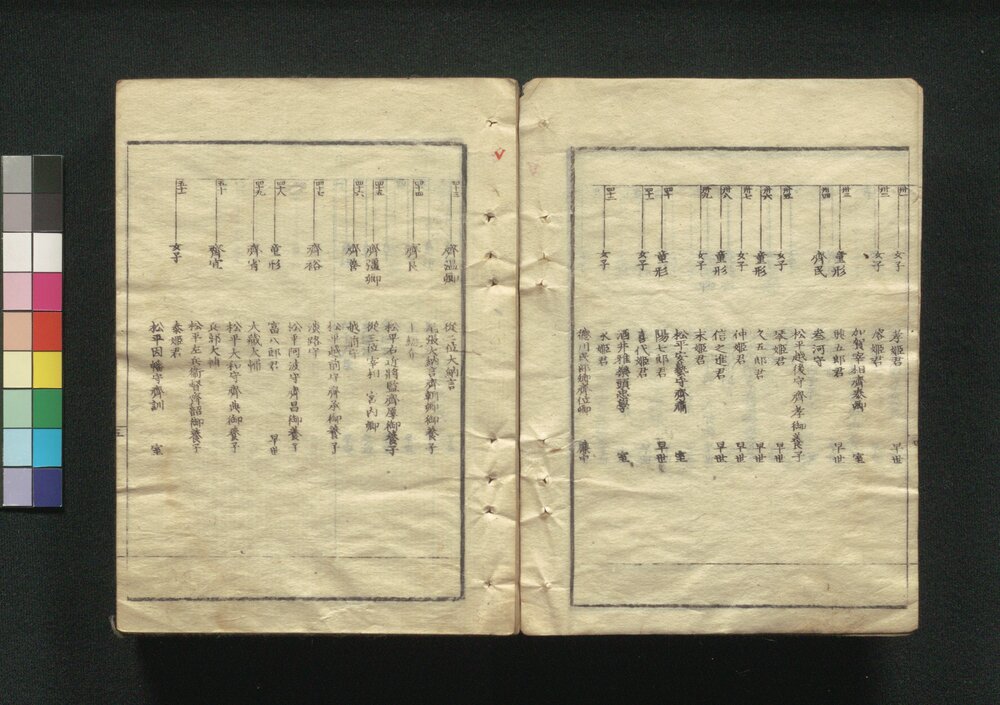 卅一 女子 孝姫君 早世
卅二 女子 溶姫君
加賀宰相齊泰卿 室
卅三 童形 五郎君 早世
卅四 齊民 参河守
松平越後守齊孝御養子
卅五 女子 琴姫君 早世
卅六 童形 久五郎君 早世
卅七 女子 仲姫君 早世
卅八 童形 信之進君 早世
卅九 女子 末姫君
松平安藝守齊粛 室
四十 童形 陽七郎君 早世
四十一 女子 喜代姫君
酒井雅樂頭忠學 室
四十二 女子 永姫君
徳川式部卿齊位卿 簾中
四十三 齊温卿 從二位大納言
尾張大納言齊朝卿御養子
四十四 齊良 上総介
松平右近將監齊厚御養子
四十五 齊彊卿 從三位宰相 宮内卿
四十六 齊善 越前守
松平越前守齊承御養子
四十七 齊裕 淡路守
松平阿波守齊昌御養子
四十八 童形 富八郎君 早世
四十九 齊省 大藏大輔
松平大和守齊典御養子
五十 齊宣 兵部大輔
松平左兵衛督齊韶御養子
五十一 女子 泰姫君
松平因幡守齊訓 室